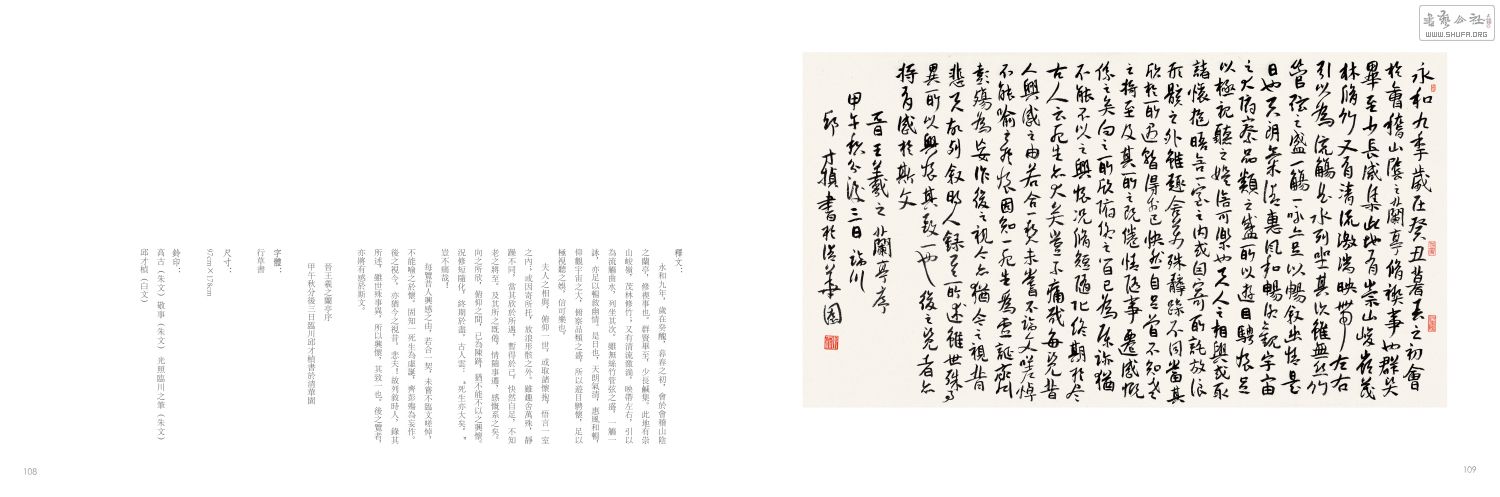 釋文：
永和九年，歲在癸醜，暮春之初，會於會稽山陰
之蘭亭，修禊事也。群賢畢至，少長鹹集。此地有崇
山峻嶺，茂林修竹；又有清流激湍，映帶左右，引以
為流觴曲水，列坐其次。雖無絲竹管弦之盛，一觴一
詠，亦足以暢敘幽情。是日也，天朗氣清，惠風和暢，
仰觀宇宙之大，俯察品類之盛，所以遊目騁懷，足以
極視聽之娛，信可樂也。
夫人之相與，俯仰一世，或取諸懷抱，悟言一室
之內；或因寄所托，放浪形骸之外。雖趣舍萬殊，靜
躁不同，當其欣於所遇，暫得於己，快然自足，不知
老之將至。及其所之既倦，情隨事遷，感慨系之矣。
向之所欣，俯仰之間，已為陳跡，猶不能不以之興懷。
況修短隨化，終期於盡。古人雲：“死生亦大矣。”
豈不痛哉！
每覽昔人興感之由，若合一契，未嘗不臨文嗟悼，
不能喻之於懷。固知一死生為虛誕，齊彭殤為妄作。
後之視今，亦猶今之視昔。悲夫！故列敘時人，錄其
所述，雖世殊事異，所以興懷，其致一也。後之覽者，
亦將有感於斯文。
晉王羲之蘭亭序
甲午秋分後三日臨川邱才楨書於清華園
字體：
行草書
尺寸：
97cm×178cm
鈐印：
高古（朱文）敬事（朱文） 光照臨川之筆（朱文）
邱才楨（白文）
108
永和九年歲在癸丑暮春之初會
於會稽山陰之蘭亭脩禊事也群賢
畢至少長咸集此地有崇山峻嶺茂
林脩竹又有清流激湍映帶左右
引以為流觴曲水列坐其次雖無絲竹
管弦之盛一觴一詠亦足以暢敘幽情是
日也天朗氣清惠風和暢仰觀宇宙
之大俯察品類之盛所以遊目騁懷足
以極視聽之娛信可樂也夫人之相與或取
諸懷抱晤言一室之內或因寄所託放浪
形骸之外雖趣舍萬殊靜躁不同當其
欣於所遇暫得於己快然自足曾不知老
之將至及其所之既倦情隨事遷感慨
係之矣向之所欣俯仰之間已為陳跡猶
不能不以之興懷況脩短隨化終期於盡
古人云死生亦大矣豈不痛哉每覽昔
人興感之由若合一契未嘗不臨文嗟悼
不能喻之於懷固知一死生為虛誕齊
彭殤為妄作後之視今亦猶今之視昔
悲夫故列敘時人錄其所述雖世殊事
異所以興懷其致一也後之覽者亦
將有感於斯文
晉王羲之蘭亭序
甲午秋分後三日臨川
邱才楨書於清華園
109
書藝公社
WWW.SHUFA.ORG